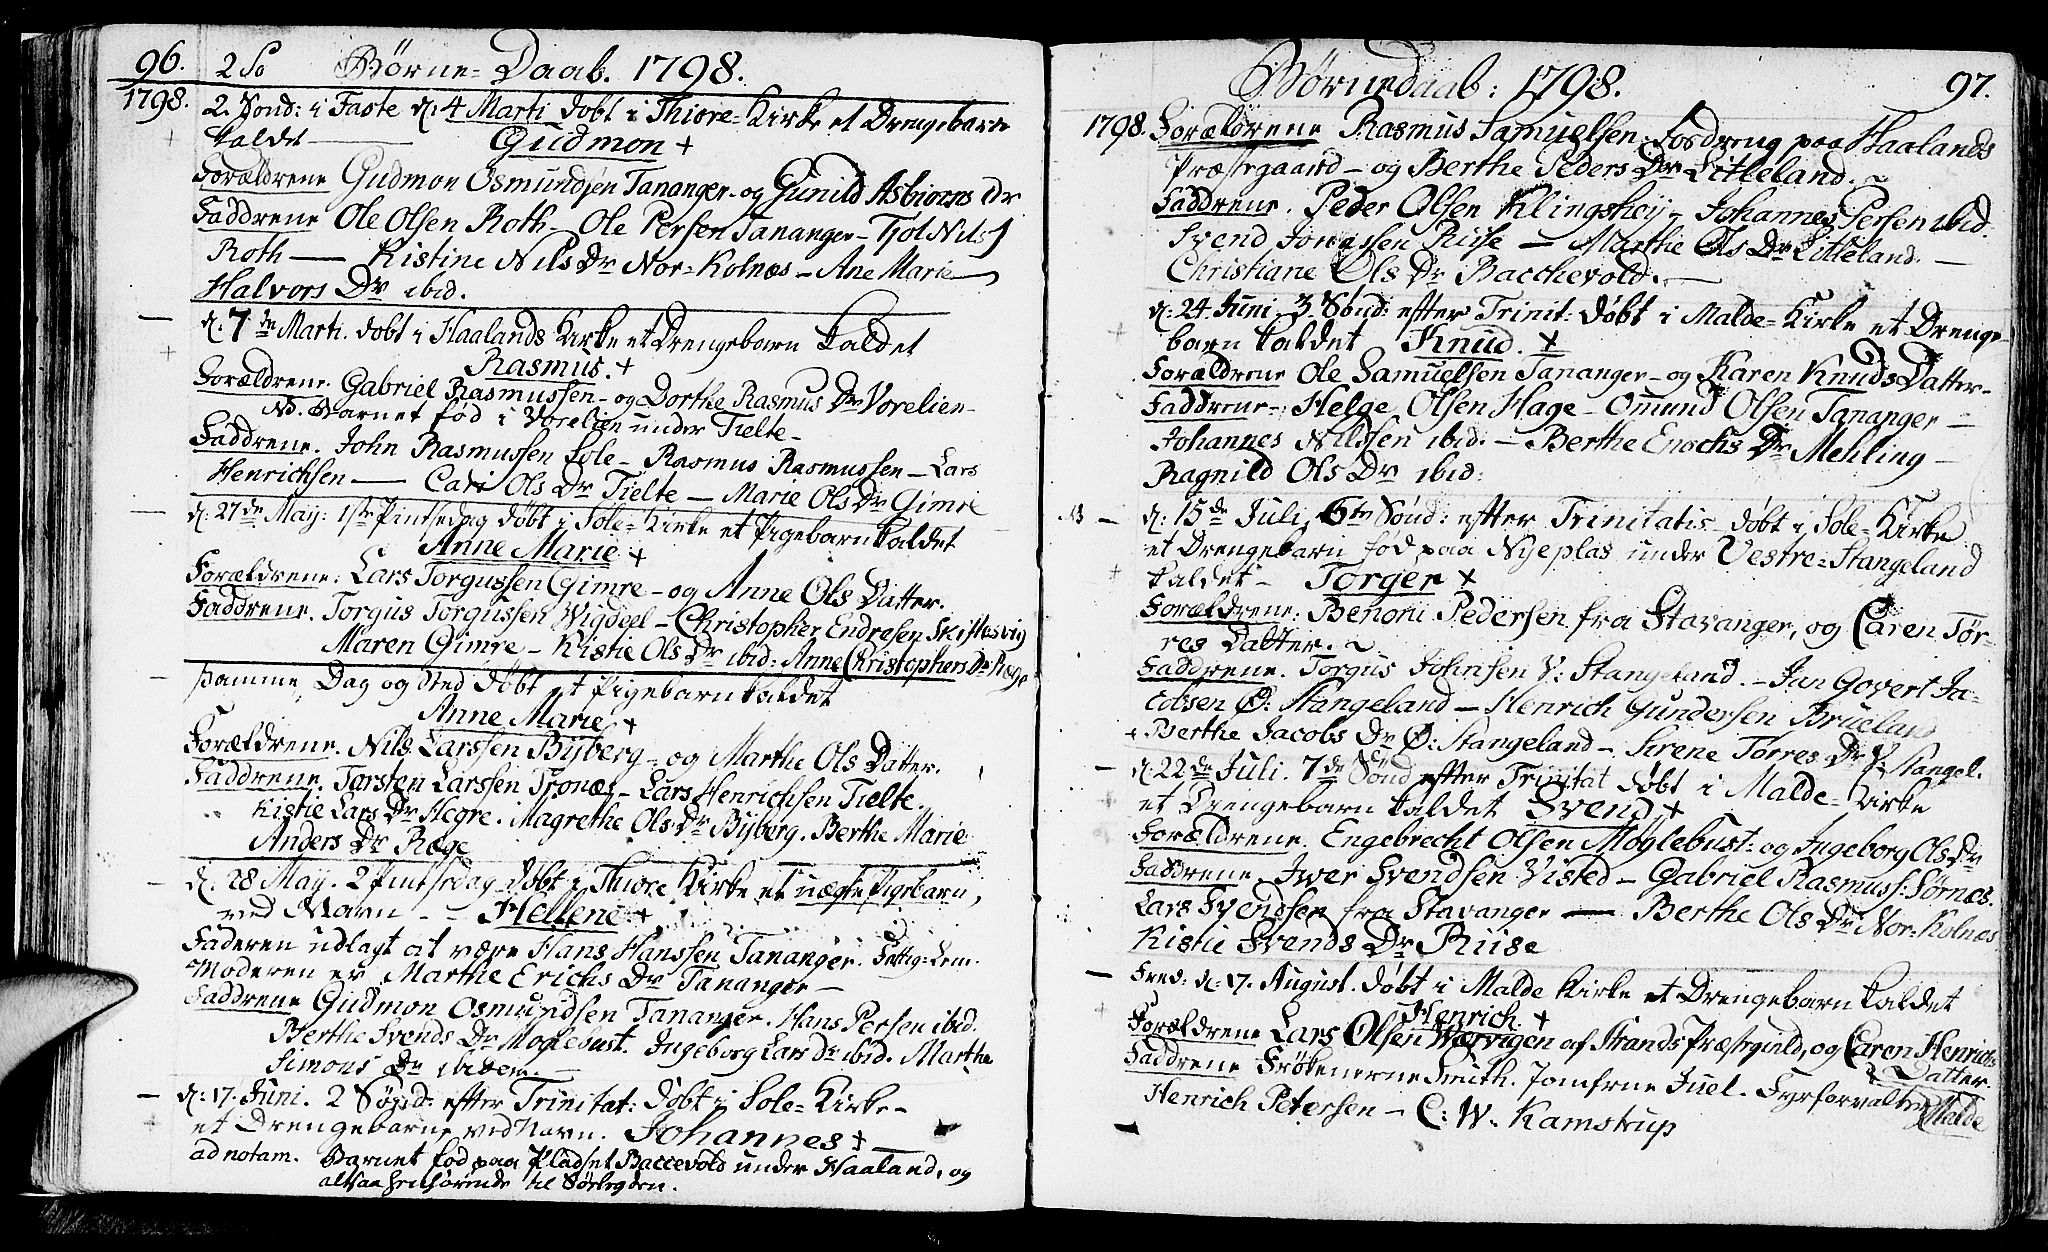 96. 2 So Børne-Daab. 1798.
1798. 2. Sond: i Faste d: 4 Marti døbt i Thiore-Kirke et Drengebarn
kaldet — Gudmon +
Forældrene Gudmon Osmundsen Tananger - og Gunild Asbiorns Dr
Faddrene Ole Olsen Roth - Ole Persen Tananger - Tjol Nils
Roth — Kistine Nils Dr Nor-Kolnæs - Ane Marie
Halvors Dr ibid.
d: 7de Marti. døbt i Haalands Kirke et Drengebarn kaldet
Rasmus. +
Forældrene. Gabriel Rasmussen - og Dorthe Rasmus Dr Vorelien -
NB. Barnet fød i Vorelien under Tielte -
Faddrene. John Rasmussen Sole - Rasmus Rasmussen - Lars
Henrichsen — Cari Ols Dr Tielte — Marie Ols Dr Gimre
d: 27de May: 1ste Pintsedag døbt i Sole-Kirke et Pigebarn kaldet
Anne Marie +
Forældrene: Lars Torgussen Gimre - og Anne Ols Datter.
Faddrene. Torgus Torgussen Wigdeel - Christopher Endresen Skiftesvig
Maren Gimre - Kistie Ols Dr ibid: Anne Christophers Dr Ræge
Samme Dag og Sted døbt et Pigebarn kaldet
Anne Marie +
Forældrene. Nils Larssen Byberg - og Marthe Ols Datter.
Faddrene. Torsten Larssen Tronæs - Lars Henrichsen Tielte.
Kistie Lars Dr Hegre. Magrethe Ols Dr Byberg. Berthe Marie
Anders Dr Ræge
d: 28 May. 2 Pintsedag døbt i Thiore Kirke et uægte Pigebarn,
ved Navn - - Hellene +
Faderen udlagt at være Hans Hanssen Tananger. Fattig-Lem.
Moderen er Marthe Erichs Dr Tananger -
Faddrene Gudmon Osmundsen Tananger. Hans Persen ibid.
Berthe Svends Dr Moglebust. Ingeborg Lars Dr ibid. Marthe
Simons Dr ibidem. —
d: 17. Juni. 2 Sønd: efter Trinitat: døbt i Sole-Kirke -
et Drengebarn ved Navn. Johannes +
ad notam. Barnet fød paa Pladset Baccevold under Haaland, og
altsaa henhørende til Sørbygden.
Børnedaab: 1798. 97.
1798. Forældrene Rasmus Samuelsen. Tosdreng paa Haalands
Præstegaard - og Berthe Peders Dr Litleland.
Faddrene. Peder Olsen Klingshey - Johannes Persen ibid.
Svend Jonassen Riise — Marthe Ols Dr Litleland. —
Christiane Ols Dr Bacchevold. —
d: 24 Juni. 3. Sønd: efter Trinit: døbt i Malde-Kirke et Drenge-
barn kaldet Knud. +
Forældrene Ole Samuelsen Tananger - og Karen Knuds Datter -
Faddrene - Helge Olsen Hage - Omund Olsen Tananger —
Johannes Nilssen ibid. - Berthe Enochs Dr Mehling —
Ragnild Ols Dr ibid:
NB — d: 15de Juli, 6te Sønd: efter Trinitatis døbt i Sole-Kirke
et Drengebarn fød paa Nyeplas under Vestre-Stangeland
kaldet - Torger +
Forældrene: Benoni Pedersen fra Stavanger, og Caren Tør-
res Datter.
Faddrene. Torgus Johnsen V: Stangeland. - Jan Govert Ja-
cobsen Ø: Stangeland — Henrich Gundersen Brueland
+ Berthe Jacobs Dr Ø: Stangeland - Sirene Tørres Dr V: Stangel.
d: 22de Juli. 7de Sønd efter Trinitat døbt i Malde-Kirke
et Drengebarn kaldet Svend +
Forældrene. Engebrecht Olsen Møglebust: og Ingeborg Ols Dr
Faddrene. Iver Svendsen Visted - Gabriel Rasmuss: Sørnæs.
Lars Svendsen fra Stavanger — Berthe Ols Dr Nor-Kolnæs
Kistie Svends Dr Riise
Fred: d: 17. August. døbt i Malde Kirke et Drengebarn kaldet
Henrich. +
Forældrene Lars Olsen Wærvigen af Strands Præstegield, og Caren Henrichs
Datter.
Faddrene Frøkenerne Smith. Jomfrue Juel. Fyrforvalter
Henrich Petersen - C: W. Kamstrup Malde